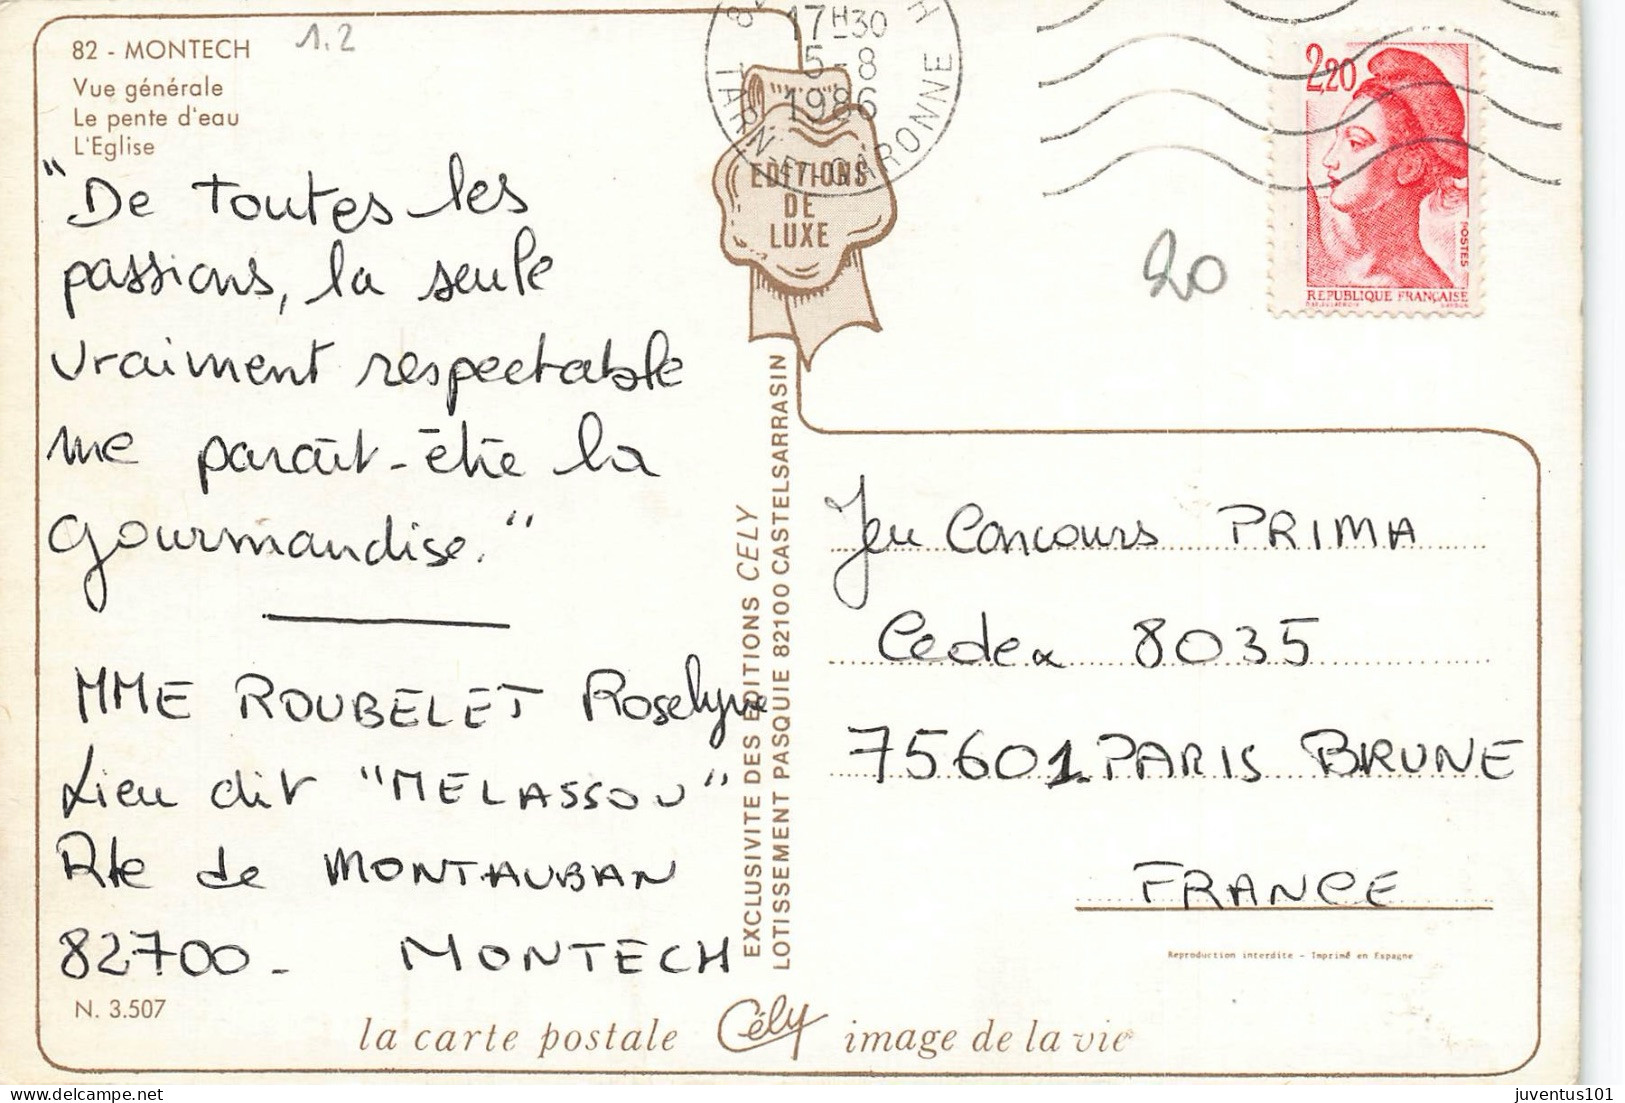 82 - MONTECH
1.2
Vue générale
Le pente d'eau
L'Eglise
"De toutes les
passions, la seule
vraiment respectable
me paraît-être la
gourmandise."
MME ROUBELET Roselyne
Lieu dit "MELASSOU"
Rte de MONTAUBAN
82700 - MONTECH
N. 3.507
17H30
5-8
1986
TARN ET GARONNE
EDITIONS
DE
LUXE
EXCLUSIVITE DES EDITIONS CELY
LOTISSEMENT PASQUIE 82100 CASTELSARRASIN
2,20
POSTES
REPUBLIQUE FRANÇAISE
20
Jeu Concours PRIMA
Cedex 8035
75601 PARIS BRUNE
FRANCE
Reproduction interdite - Imprimé en Espagne
la carte postale Cély image de la vie
juventus101